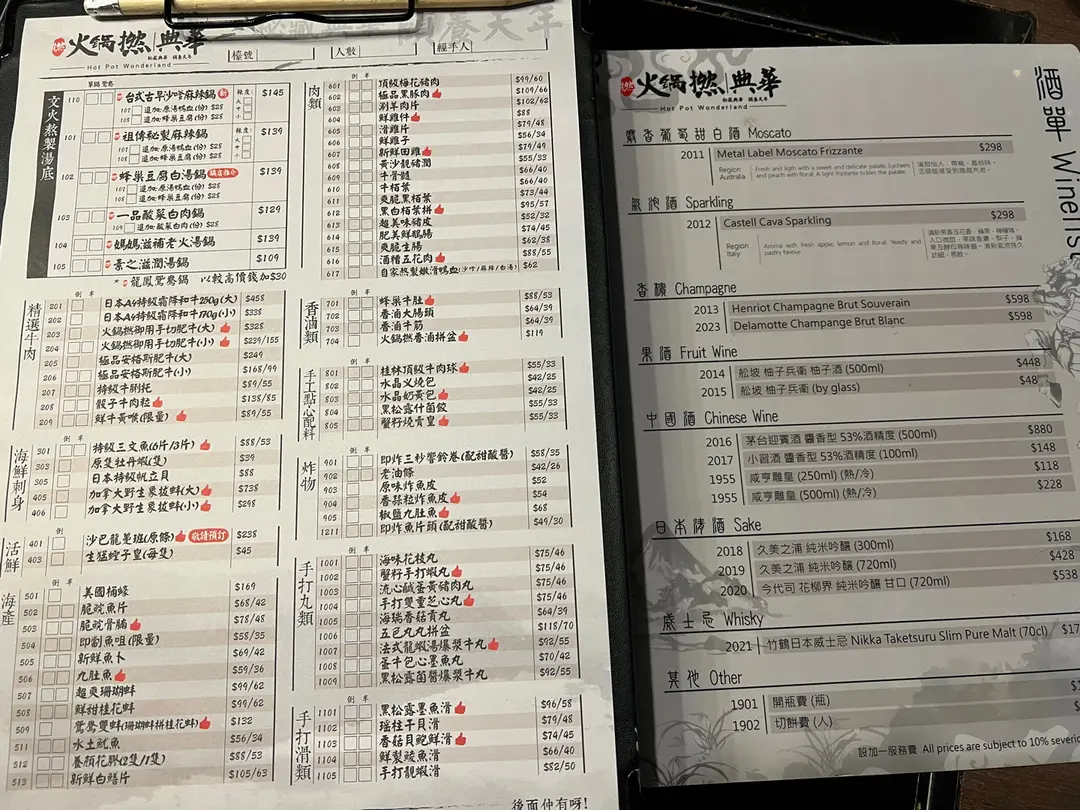 火鍋撚|典華
Hot Pot Wonderland
檯號
人數
經手人
文火熬製湯底
110 台式古早沙嗲麻辣鍋 $145
101 祖傳秘製麻辣鍋 $139
102 蜂巢豆腐白湯鍋 $139
103 一品酸菜白肉鍋 $129
104 媽媽滋補老火湯鍋 $139
105 素之滋潤湯鍋 $109
*龍鳳鴛鴦鍋 以較高價錢加$30
精選牛肉
201 日本A4特級霜降和牛250g(大) $458
202 日本A4特級霜降和牛170g(小) $338
203 火鍋撚御用手切肥牛(大) $328
204 火鍋撚御用手切肥牛(小) $239/155
205 極品安格斯肥牛(大) $249
206 極品安格斯肥牛(小) $168/99
207 特級牛脷托 $89/55
208 骰子牛肉粒 $138/85
209 鮮牛黃喉(限量) $89/55
海鮮刺身
301 特級三文魚(6片/3片) $88/53
303 原隻牡丹蝦(隻) $39
305 日本特級帆立貝 $88
405 加拿大野生象拔蚌(大) $738
406 加拿大野生象拔蚌(小) $298
活鮮
401 沙巴龍躉班(原條) 敬請預訂 $238
403 生猛蟶子皇(每隻) $45
海產
501 美國桶蠔 $169
502 脆皖魚片 $68/42
503 脆皖骨腩 $78/48
504 即劏魚咀(限量) $58/35
505 新鮮魚卜 $69/42
506 九肚魚 $59/36
507 超爽珊瑚蚌 $99/62
508 鮮甜桂花蚌 $99/62
509 鴛鴦雙蚌(珊瑚蚌拼桂花蚌) $132
511 水土魷魚 $56/34
512 養顏花膠(2隻/1隻) $88/53
513 新鮮白鱔片 $105/63
肉類
601 頂級梅花豬肉 $99/60
602 極品黑豚肉 $109/66
603 涮羊肉片 $102/62
604 鮮雞件 $88
605 滑雞片 $56/34
606 鮮雞子 $79/49
607 新鮮田雞 $55/33
608 黃沙靚豬潤
609 牛骨髓
610 牛栢葉
611 爽脆黑栢葉
612 黑白栢葉拼 $95/57
613 超美味豬皮 $52/32
614 肥美鮮鵝腸 $74/45
615 爽脆生腸 $62/38
616 酒糟五花肉 $88/55
617 自家熬製嫩滑鴨血(沙嗲/麻辣/白湯) $62
香滷類
701 蜂巢牛肚 $88/53
702 香滷大腸頭 $64/39
703 香滷牛筋 $64/39
704 火鍋撚香滷拼盆 $119
手工點心配料
801 桂林頂級牛肉球 $55/33
802 水晶叉燒包 $42/25
803 水晶奶黃包 $42/25
804 黑松露什菌餃 $55/33
805 蟹籽燒賣皇 $55/33
炸物
901 即炸三秒響鈴卷(配柑酸醬) $58/35
902 老油條 $42/26
903 原味炸魚皮 $52
904 香蒜粒炸魚皮 $54
905 椒鹽九肚魚 $68
1211 即炸魚片頭(配柑酸醬) $49/30
手打丸類
1001 海味花枝丸 $75/46
1002 蟹籽手打蝦丸 $75/46
1003 流心鹹蛋黃豬肉丸 $75/46
1004 手打雙重芝心丸 $75/46
1005 海瑞香菇貢丸 $64/39
1006 五色丸丸拼盆 $118/70
1007 法式龍蝦湯爆漿牛丸 $92/55
1008 蛋牛包心墨魚丸 $70/42
1009 黑松露菌醬爆漿牛丸 $92/55
手打滑類
1101 黑松露墨魚滑 $96/58
1102 瑤柱干貝滑 $79/48
1103 香菇貝鮑鮮滑 $74/45
1104 鮮製鯪魚滑 $66/40
1105 手打靚蝦滑 $82/50
後面仲有呀!
火鍋撚|典華
Hot Pot Wonderland
酒單 Winelist
麝香葡萄甜白酒 Moscato
2011 Metal Label Moscato Frizzante $298
Region Australia
氣泡酒 Sparkling
2012 Castell Cava Sparkling $298
Region Italy
香檳 Champagne
2013 Henriot Champagne Brut Souverain $598
2023 Delamotte Champange Brut Blanc $598
果酒 Fruit Wine
2014 舩坡 柚子兵衛 柚子酒 (500ml) $448
2015 舩坡 柚子兵衛 (by glass) $48
中國酒 Chinese Wine
2016 茅台迎賓酒 醬香型 53%酒精度 (500ml) $880
2017 小習酒 醬香型 53%酒精度 (100ml) $148
1955 咸亨雕皇 (250ml) (熱/冷) $118
1955 咸亨雕皇 (500ml) (熱/冷) $228
日本清酒 Sake
2018 久美之浦 純米吟釀 (300ml) $168
2019 久美之浦 純米吟釀 (720ml) $428
2020 今代司 花柳界 純米吟釀 甘口 (720ml) $538
威士忌 Whisky
2021 竹鶴日本威士忌 Nikka Taketsuru Slim Pure Malt (70cl)
其他 Other
1901 開瓶費 (瓶)
1902 切餅費 (人)
設加一服務費 All prices are subject to 10% severic